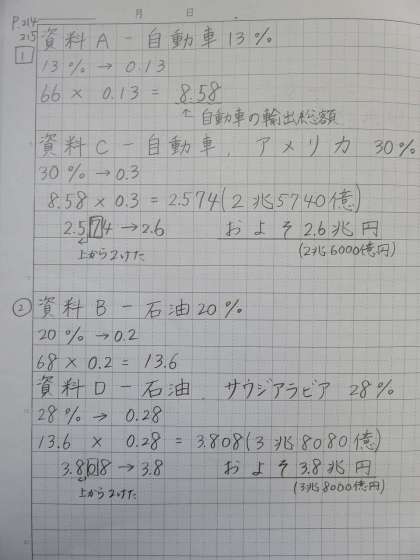 月 日
P.214
215
1 資料A - 自動車 13%
13% → 0.13
66 × 0.13 = 8.58
↑ 自動車の輸出総額
資料C - 自動車. アメリカ 30%
30% → 0.3
8.58 × 0.3 = 2.574(2兆5740億)
2.574 → 2.6 およそ 2.6兆円
上から2けた (2兆6000億円)
② 資料B - 石油 20%
20% → 0.2
68 × 0.2 = 13.6
資料D - 石油. サウジアラビア 28%
28% → 0.28
13.6 × 0.28 = 3.808(3兆8080億)
3.808 → 3.8 およそ 3.8兆円
上から2けた (3兆8000億円)